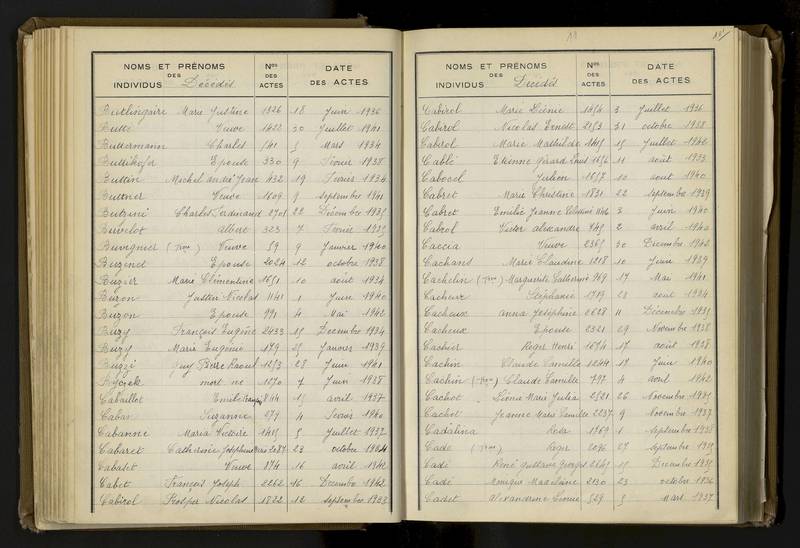 NOMS ET PRÉNOMS
DES
INDIVIDUS Décédés
Nos
DES
ACTES
DATE
DES ACTES
Butlingaire Marie Justine 1326 18 Juin 1936
Butté Veuve 1422 30 Juillet 1941
Buttermann Charles 541 5 Mars 1934
Buttikofer Epouse 330 9 Février 1938
Buttin Michel André Jean 432 19 Février 1934
Buttner Veuve 1609 9 septembre 1941
Charles Ferdinand 2701 22 Décembre 1935
Buvelot Albert 323 7 Février 1935
Buvignier (Veuve) Veuve 59 9 Janvier 1940
Epouse 2024 12 octobre 1938
Buzier Marie Clémentine 1651 10 août 1934
Buzon Justin Nicolas 1141 1 Juin 1940
Buzon Epouse 991 4 Mai 1942
Buzy François Eugène 2433 15 Decembre 1934
Buzy Marie Eugénie 179 25 Janvier 1939
Buzzi Guy Pierre Raoul 1253 28 Juin 1941
mort né 1270 7 Juin 1938
Cabaillot Emile 844 15 avril 1937
Caban Suzanne 279 4 Février 1940
Cabanne Maria Victoire 1415 5 Juillet 1937
Cabaret Catherine Joséphine 2087 23 octobre 1934
Cabaset Veuve 874 16 avril 1942
Cabet François Joseph 2262 16 Decembre 1942
Cabirol Nicolas 1832 12 septembre 1933
NOMS ET PRÉNOMS
DES
INDIVIDUS Décédés
Nos
DES
ACTES
DATE
DES ACTES
Cabirol Marie 1454 3 Juillet 1936
Cabirol Nicolas Ernest 2153 31 octobre 1938
Cabirol Marie Mathilde 1415 15 Juillet 1942
Cablé Etienne Gérard Louis 1656 11 août 1933
Cabocel Julien 1657 10 août 1940
Cabret Marie Christine 1831 22 septembre 1939
Cabret Emilie Jeanne 1146 3 Juin 1940
Cabrol Victor Alexandre 845 2 avril 1940
Caccia Veuve 2365 30 Decembre 1942
Cachard Marie Claudine 1218 10 Juin 1939
Cachelin Marguerite Catherine 969 17 Mai 1941
Cacheux Stéphanie 1719 28 août 1934
Cacheux Anna Joséphine 2628 11 Décembre 1935
Cacheux Epouse 2321 29 Novembre 1938
Cachier Roger Henri 1674 17 août 1938
Cachin Claude Camille 1244 17 Juin 1940
Cachin Claude Camille 797 4 avril 1942
Cachot Marie Julia 2521 26 Novembre 1935
Cachot Jeanne Marie Camille 2237 9 Novembre 1937
Cadalina Rosa 1769 1 septembre 1938
Cadé Roger 2096 27 septembre 1935
Cadé René Gustave Georges 2645 15 Decembre 1935
Cadé Monique Madeleine 2130 23 octobre 1936
Cadet Alexandrine 529 5 Mars 1937